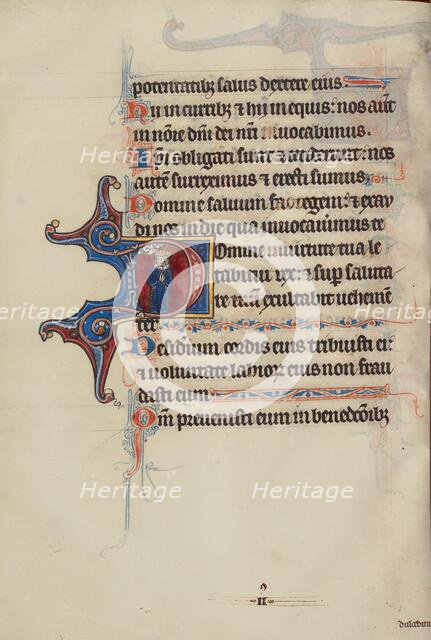 potentatibz salus dextere eius.
Hii in curribz & hii in equis: nos aut
in nõre dñi dei nri inuocabimus.
Ipsi obligati sunt & ceciderunt: nos
autẽ surreximus & erecti sumus.
Domine saluum fac regem: & exau
di nos in die qua inuocauimus te
Domine in uirtute tua le
tabitur rex: & sup saluta
re exultabit uehemẽ
ter.
Desidium cordis eius tribuisti ei:
& uoluntate labior eius non frau
dasti eum.
Qm̃ preuenisti eum in benedcõibz
II
dulcedini
Heritage
Heritage
Heritage
Heritage
Heritage
Heritage